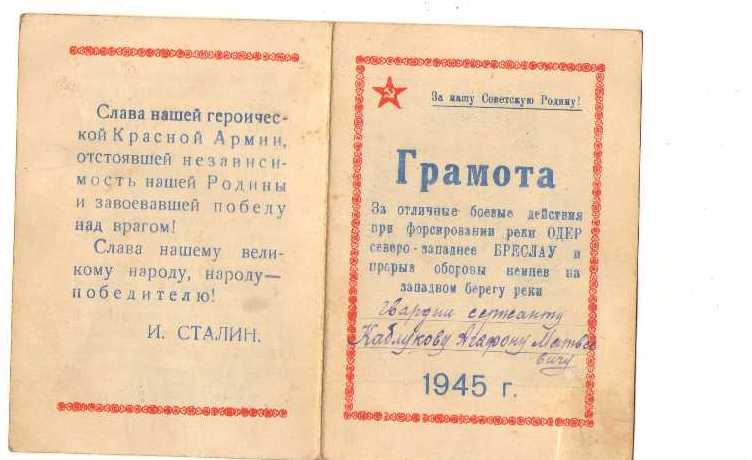 Слава нашей героичес-
кой Красной Армии,
отстоявшей независи-
мость нашей Родины
и завоевавшей победу
над врагом!
Слава нашему вели-
кому народу, народу—
победителю!
И. СТАЛИН.
За нашу Советскую Родину!
Грамота
За отличные боевые действия
при форсировании реки ОДЕР
северо-западнее БРЕСЛАУ и
прорыв обороны немцев на
западном берегу реки
гвардии сержанту
Каблукову Агафону Матвее
вичу
1945 г.